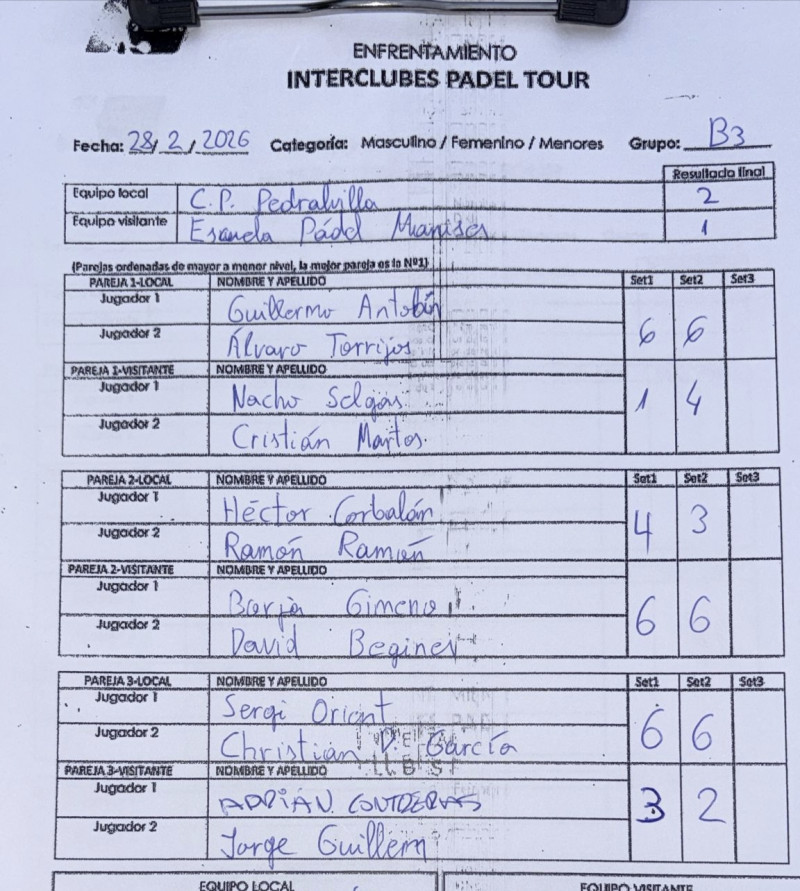 ENFRENTAMIENTO
INTERCLUBES PADEL TOUR
Fecha: 28/2/2026 Categoría: Masculino / Femenino / Menores Grupo: B3
Resultado final
Equipo local C.P. Pedralvilla 2
Equipo visitante Escuela Pádel Manises 1
(Parejas ordenadas de mayor a menor nivel, la mejor pareja es la Nº1)
PAREJA 1-LOCAL NOMBRE Y APELLIDO Set1 Set2 Set3
Jugador 1 Guillermo Antolín
Jugador 2 Álvaro Torrijos 6 6
PAREJA 1-VISITANTE NOMBRE Y APELLIDO
Jugador 1 Nacho Selgas 1 4
Jugador 2 Cristián Martos.
PAREJA 2-LOCAL NOMBRE Y APELLIDO Set1 Set2 Set3
Jugador 1 Héctor Corbalán
Jugador 2 Ramón Ramón 4 3
PAREJA 2-VISITANTE NOMBRE Y APELLIDO
Jugador 1 Borja Gimeno
Jugador 2 David Beginer 6 6
PAREJA 3-LOCAL NOMBRE Y APELLIDO Set1 Set2 Set3
Jugador 1 Sergi Orient
Jugador 2 Christian V. García 6 6
PAREJA 3-VISITANTE NOMBRE Y APELLIDO
Jugador 1 ADRIÁN CONTRERAS 3 2
Jugador 2 Jorge Guillem
EQUIPO LOCAL EQUIPO VISITANTE